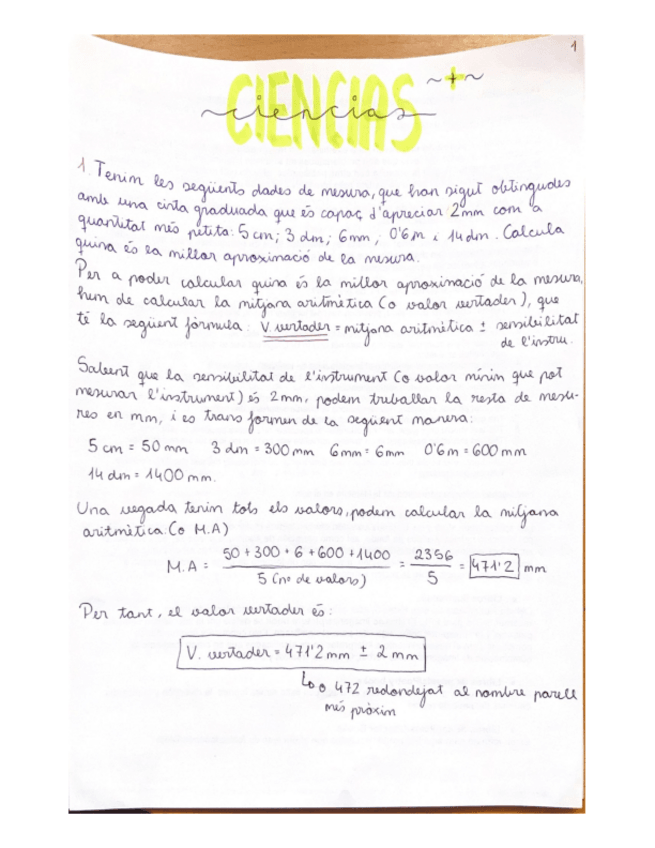 1
CIENCIAS ~+~
ciencias
1. Tenim les següents dades de mesura, que han sigut obtingudes
amb una cinta graduada que és capaç d'apreciar 2mm com a
quantitat més petita: 5 cm; 3 dm; 6mm; 0'6m i 14 dm. Calcula
quina és la millor aproximació de la mesura.
Per a poder calcular quina és la millor aproximació de la mesura,
hem de calcular la mitjana aritmètica (o valor vertader), que
té la següent fórmula: V vertader = mitjana aritmètica ± sensibilitat
de l'instru.
Sabent que la sensibilitat de l'instrument (o valor mínim que pot
mesurar l'instrument) és 2mm, podem treballar la resta de mesu-
res en mm, i es transformen de la següent manera:
5 cm = 50 mm 3 dm = 300 mm 6mm = 6mm 0'6m = 600 mm
14 dm = 1400 mm.
Una vegada tenim tots els valors, podem calcular la mitjana
aritmètica: (o M.A)
M.A = 50 + 300 + 6 + 600 + 1400 / 5 (nº de valors) = 2356 / 5 = 471'2 mm
Per tant, el valor vertader és:
V. vertader = 471'2 mm ± 2 mm
↳ o 472 redondejat al nombre parell
més pròxim